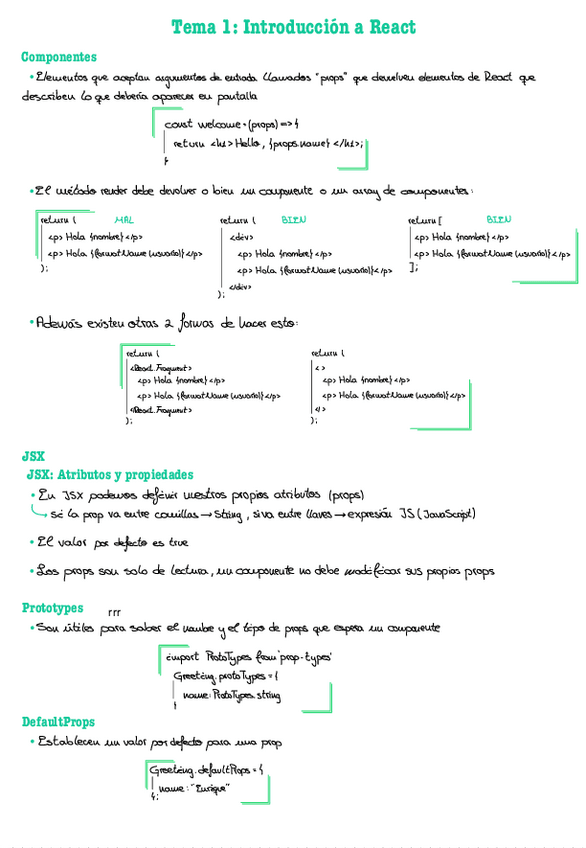 Tema 1: Introducción a React
Componentes
• Elementos que aceptan argumentos de entrada llamados "props" que devuelven elementos de React que
describen lo que debería aparecer en pantalla
const welcome = (props) => {
return <h1> Hello, {props.name} </h1>;
}
• El método render debe devolver o bien un componente o un array de componentes:
return ( MAL
<p> Hola {nombre} </p>
<p> Hola {formatName (usuario)} </p>
);
return ( BIEN
<div>
<p> Hola {nombre} </p>
<p> Hola {formatName (usuario)} </p>
</div>
);
return [ BIEN
<p> Hola {nombre} </p>
<p> Hola {formatName (usuario)} </p>
];
• Además existen otras 2 formas de hacer esto:
return (
<React.Fragment>
<p> Hola {nombre} </p>
<p> Hola {formatName (usuario)} </p>
<React.Fragment>
);
return (
< >
<p> Hola {nombre} </p>
<p> Hola {formatName (usuario)} </p>
</>
);
JSX
JSX: Atributos y propiedades
• En JSX podemos definir nuestros propios atributos (props)
si la prop va entre comillas → String, si va entre llaves → expresión JS (JavaScript)
• El valor por defecto es true
• Las props son solo de lectura, un componente no debe modificar sus propias props
Prototypes rrr
• Son útiles para saber el nombre y el tipo de props que espera un componente
import ProtoTypes from 'prop-types'
Greeting.protoTypes = {
name: ProtoTypes.string
}
DefaultProps
• Establecen un valor por defecto para una prop
Greeting.defaultProps = {
name: "Enrique"
};